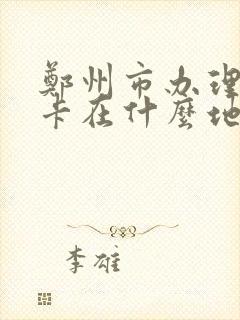 鄭州市办理
卡在什麼地
李雄